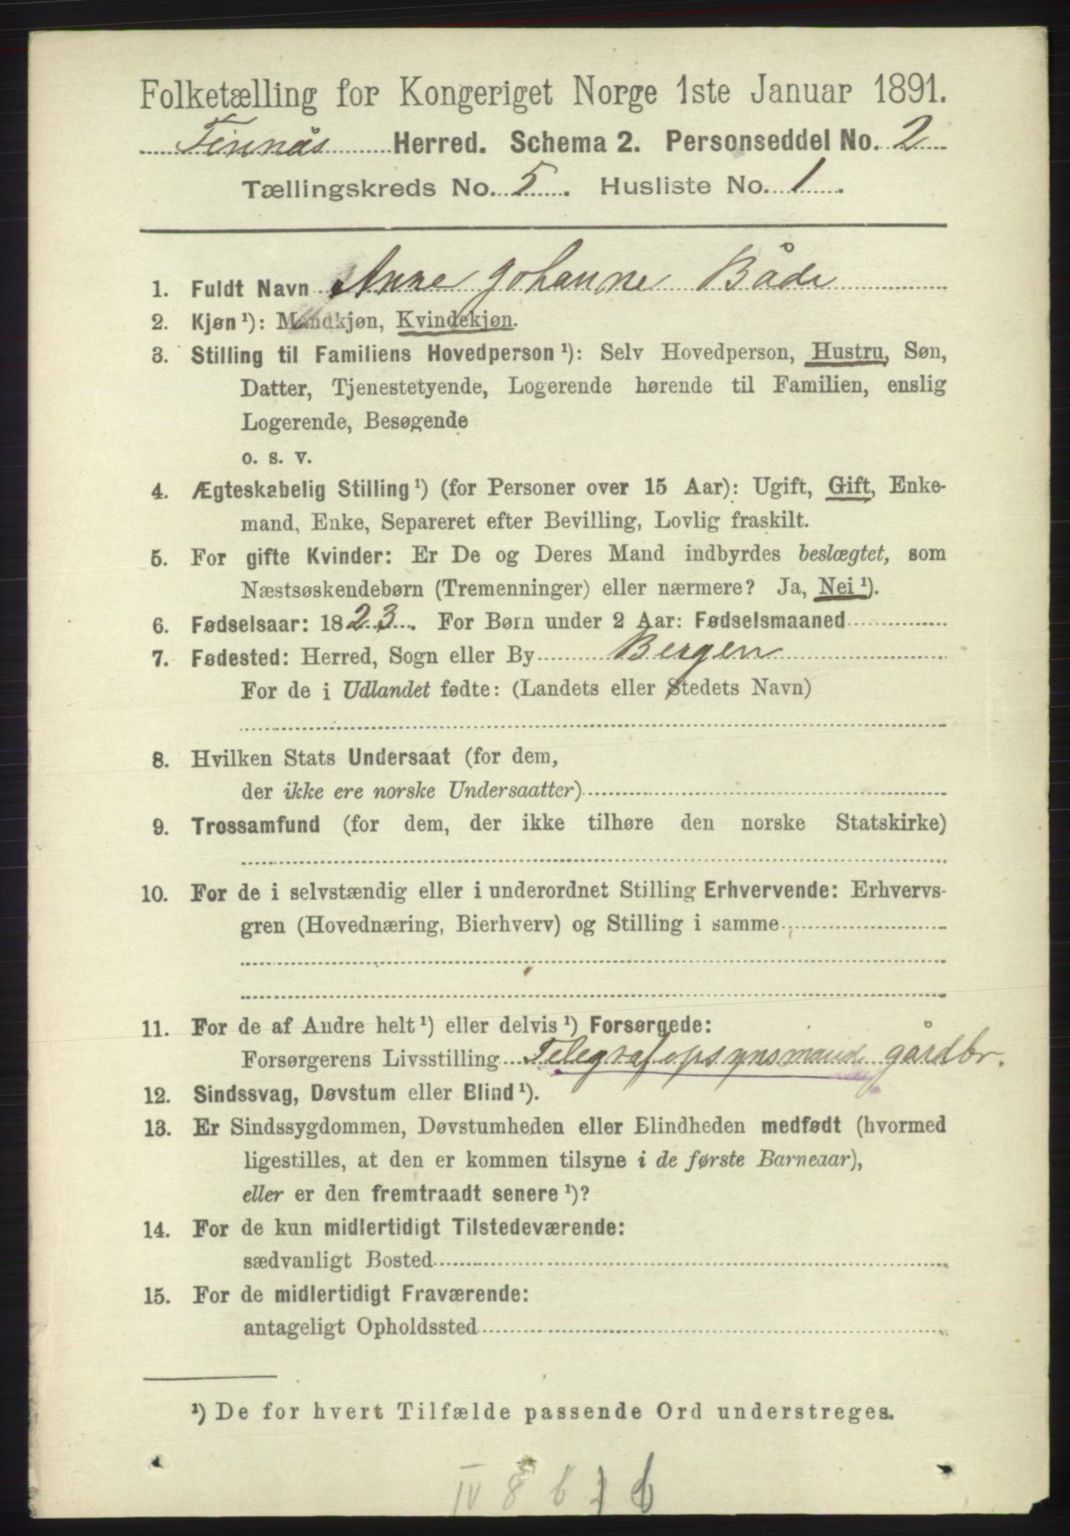 Folketælling for Kongeriget Norge 1ste Januar 1891.
Finnås Herred. Schema 2. Personseddel No. 2
Tællingskreds No. 5. Husliste No. 1.
1. Fuldt Navn Anne Johanne Både
2. Kjøn¹): Mandkjøn, Kvindekjøn.
3. Stilling til Familiens Hovedperson¹): Selv Hovedperson, Hustru, Søn,
Datter, Tjenestetyende, Logerende hørende til Familien, enslig
Logerende, Besøgende
o. s. v.
4. Ægteskabelig Stilling¹) (for Personer over 15 Aar): Ugift, Gift, Enke-
mand, Enke, Separeret efter Bevilling, Lovlig fraskilt.
5. For gifte Kvinder: Er De og Deres Mand indbyrdes beslægtet, som
Næstsøskendebørn (Tremenninger) eller nærmere? Ja, Nei¹).
6. Fødselsaar: 1823. For Børn under 2 Aar: Fødselsmaaned
7. Fødested: Herred, Sogn eller By Bergen
For de i Udlandet fødte: (Landets eller Stedets Navn)
8. Hvilken Stats Undersaat (for dem,
der ikke ere norske Undersaatter)
9. Trossamfund (for dem, der ikke tilhøre den norske Statskirke)
10. For de i selvstændig eller i underordnet Stilling Erhvervende: Erhvervs-
gren (Hovednæring, Bierhverv) og Stilling i samme
11. For de af Andre helt¹) eller delvis¹) Forsørgede:
Forsørgerens Livsstilling Telegrafopsynsmand gårdbr.
12. Sindssvag, Døvstum eller Blind¹).
13. Er Sindssygdommen, Døvstumheden eller Blindheden medfødt (hvormed
ligestilles, at den er kommen tilsyne i de første Barneaar),
eller er den fremtraadt senere¹)?
14. For de kun midlertidigt Tilstedeværende:
sædvanligt Bosted
15. For de midlertidigt Fraværende:
antageligt Opholdssted
¹) De for hvert Tilfælde passende Ord understreges.
IV 8 6